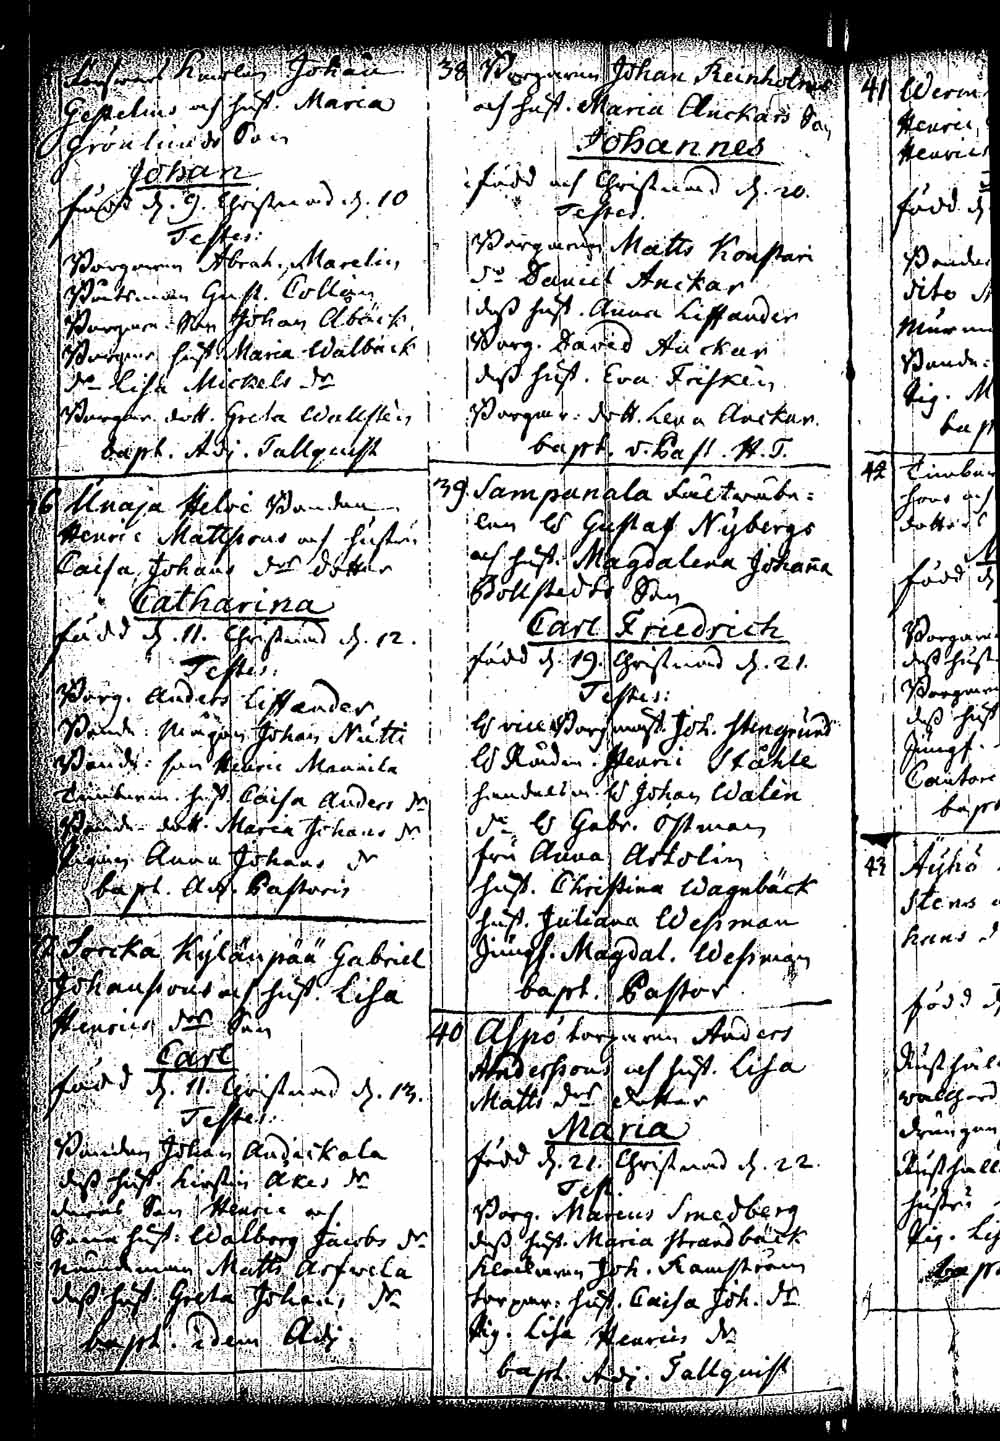 Johan
Gestelius och hust. Maria
Grönlunds Son
Johan
född d. 9. Christnad d. 10
Testes:
Borgaren Abrah. Marelin
Båtsman Gust. Collin
Borgare Son Johan Åbäck
Borgar hust. Maria Walbäck
d:o Lisa Mickels dr
Borgar. dott. Greta Wallstén
bapt. Adj. Tallquist
Unaja Helvi Bonden
Henric Mattssons och hustru
Caisa Johans drs dotter
Catharina
född d. 11. Christnad d. 12.
Testes:
Borg. Anders Liffander
Bonde: Mågen Johan Nutti
Bonde: son Henric Mannila
Timberm. hust. Caisa Anders dr
Bonde dott. Maria Johans dr
Pigan Anna Johans dr
bapt. Adj. Pastoris
Sorcka Kylänpää Gabriel
Johanssons och hust. Lisa
Henrics drs Son
Carl
född d. 11. Christnad d. 13.
Testes:
Bonden Johan Andickala
dess hust. Kirstin Åkes dr
deras Son Henric och
Sone hust. Walborg Jacobs dr
nämdeman Matts Arfwela
dess hust. Greta Johans dr
bapt. idem Adj.
38 Borgaren Johan Reinholms
och hust. Maria Anckars Son
Johannes
född och Christnad d. 20.
Testes.
Borgaren Matts Konstari
d:o Daniel Anckar
dess hust. Anna Liffander
Borg. David Anckar
dess hust. Eva Friskén
Borgar: dott. Lena Anckar.
bapt. v. Past. H. T.
39. Sampanala
Gustaf Nybergs
och hust. Magdalena Johana
Bollstedts Son
Carl Friedrich
född d. 19. Christnad d. 21.
Testes:
H vice Borgmäst. Joh. Stengrund
H Rådm. Henric Ståhle
handelsm. H Johan Walén
d:o H Gabr. Ostman
fru Anna Artolin
hust. Christina Wagnbäck
hust. Juliana Wessman
Jungf. Magdal. Wessman
bapt. Pastor
40 Aspö torparen Anders
Anderssons och hust. Lisa
Matts drs dotter
Maria
född d. 21. Christnad d. 22.
Test.
Borg. Marcus Smedberg
dess hust. Maria Strandbäck
Klockaren Joh. Ramström
torpar: hust. Caisa Joh. dr
Pig. Lisa Henrics dr
bapt. Adj. Tallquist
41
Henric
Henrics
född d.
Bonde
dito
Bonde:
Pig. M
bapt
42
dotter
född d
Borgare
dess hust
Borgare
dess hust
Jungf.
Cantor
bapt
43 Äyhö
Stens
hans d
född d
drängen
hustru
Pig. Lis
bapt